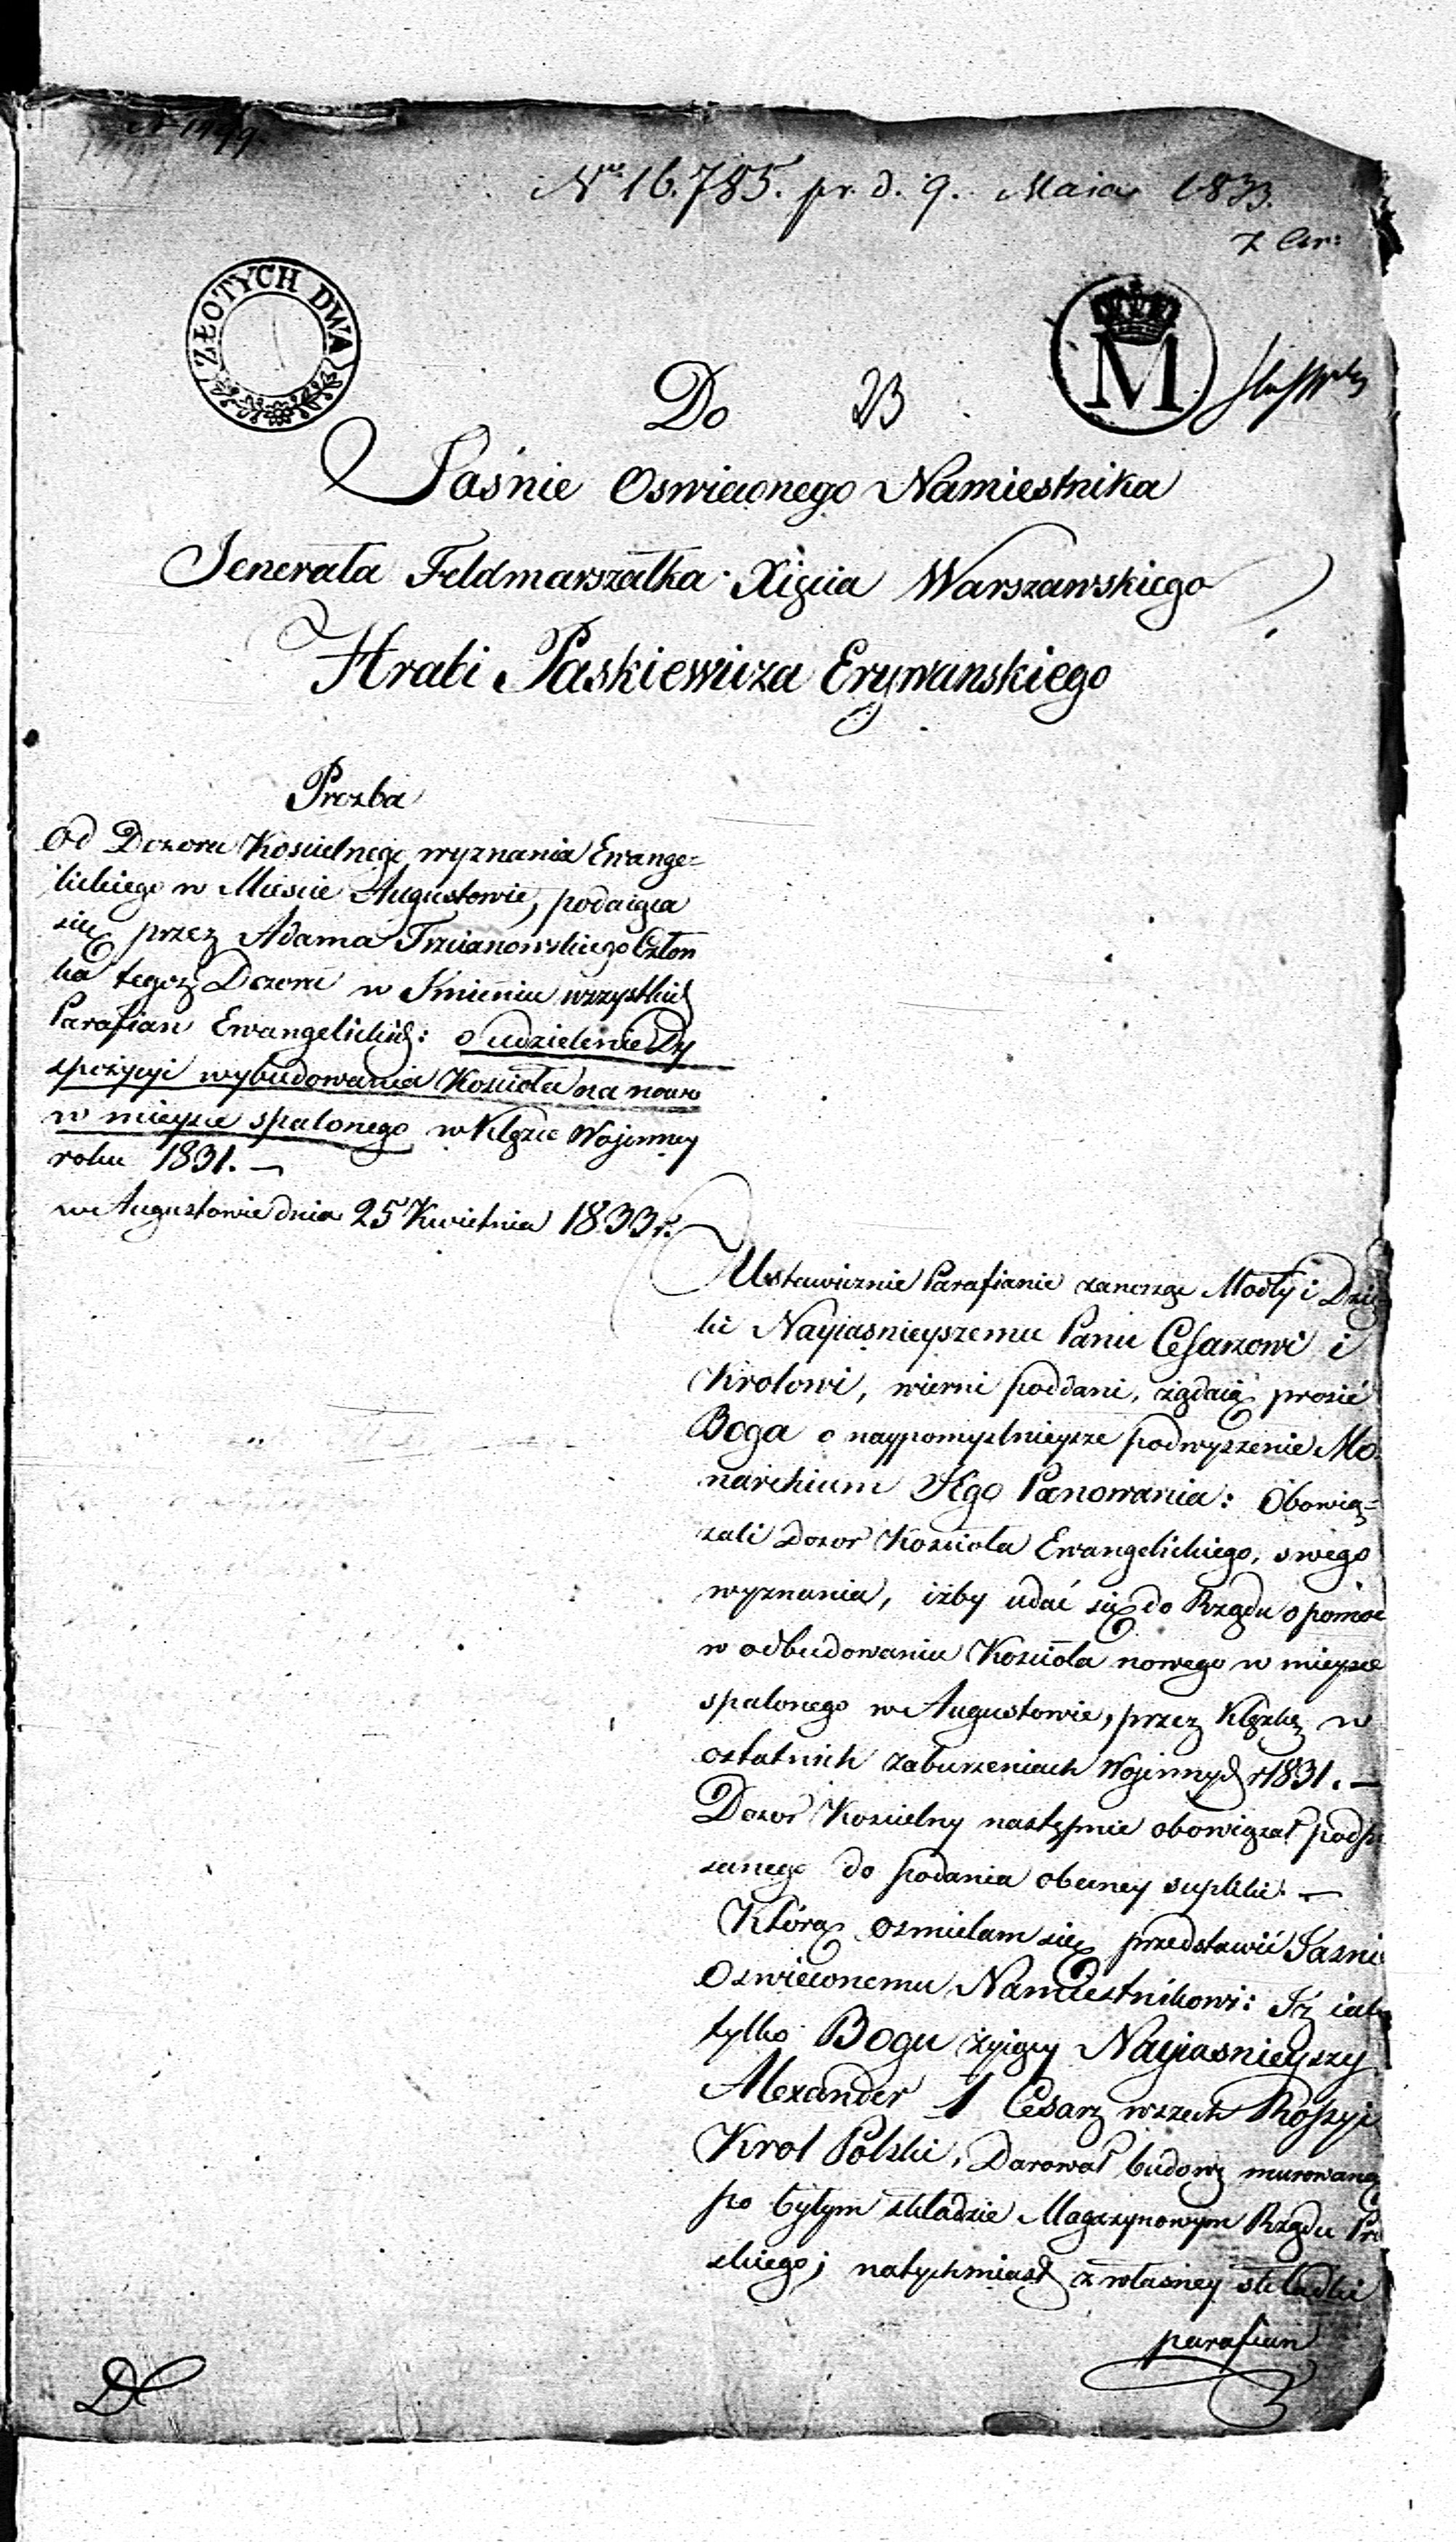 Nro 16.785. pr. d. 9. Maia 1833.
ZŁOTYCH DWA
M
Do 23
Jaśnie Oswieconego Namiestnika
Jenerała Feldmarszałka Xięcia Warszawskiego
Hrabi Paskiewicza Erywanskiego
Prozba
Od Dozoru Koscielnego wyznania Ewange=
lickiego w Miescie Augustowie, podaiąca
się przez Adama Trzcianowskiego Człon
ka tegoż Dozoru w Imieniu wszystkich
Parafian Ewangelickich: o udzielenie Dy
spozycyi wybudowania Kościoła na nowo
w mieysce spalonego w Klęzce Wojenney
roku 1831. —
w Augustowie dnia 25 Kwietnia 1833 r.
Ustawicznie Parafianie zanosząc Modły i Dzię
ki Nayiasnieyszemu Panu Cesarzowi i
Krolowi, wierni poddani, żądaią prosić
Boga o naypomyslnieysze podwyszenie Mo
narchium Jego Panowania: Obowią=
zali Dozor Kościoła Ewangelickiego, swego
wyznania, iżby udać się do Rządu o pomoc
w odbudowaniu Kościoła nowego w mieysce
spalonego w Augustowie, przez Klęzkę w
ostatnich zaburzeniach Wojennych r 1831. —
Dozor Koscielny następnie obowiązał podpi
sanego do podania obecney supliki. —
Którą osmielam się przedstawić Jasnie
Oswieconemu Namiestnikowi: Iż iak
tylko Bogu żyiący Nayiasnieyszy
Alexander 1 Cesarz wszech Rossyi
Krol Polski, Darował budowę murowaną
po byłym składzie Magazynowym Rządu Pru
skiego; natychmiast z własney składki
parafian